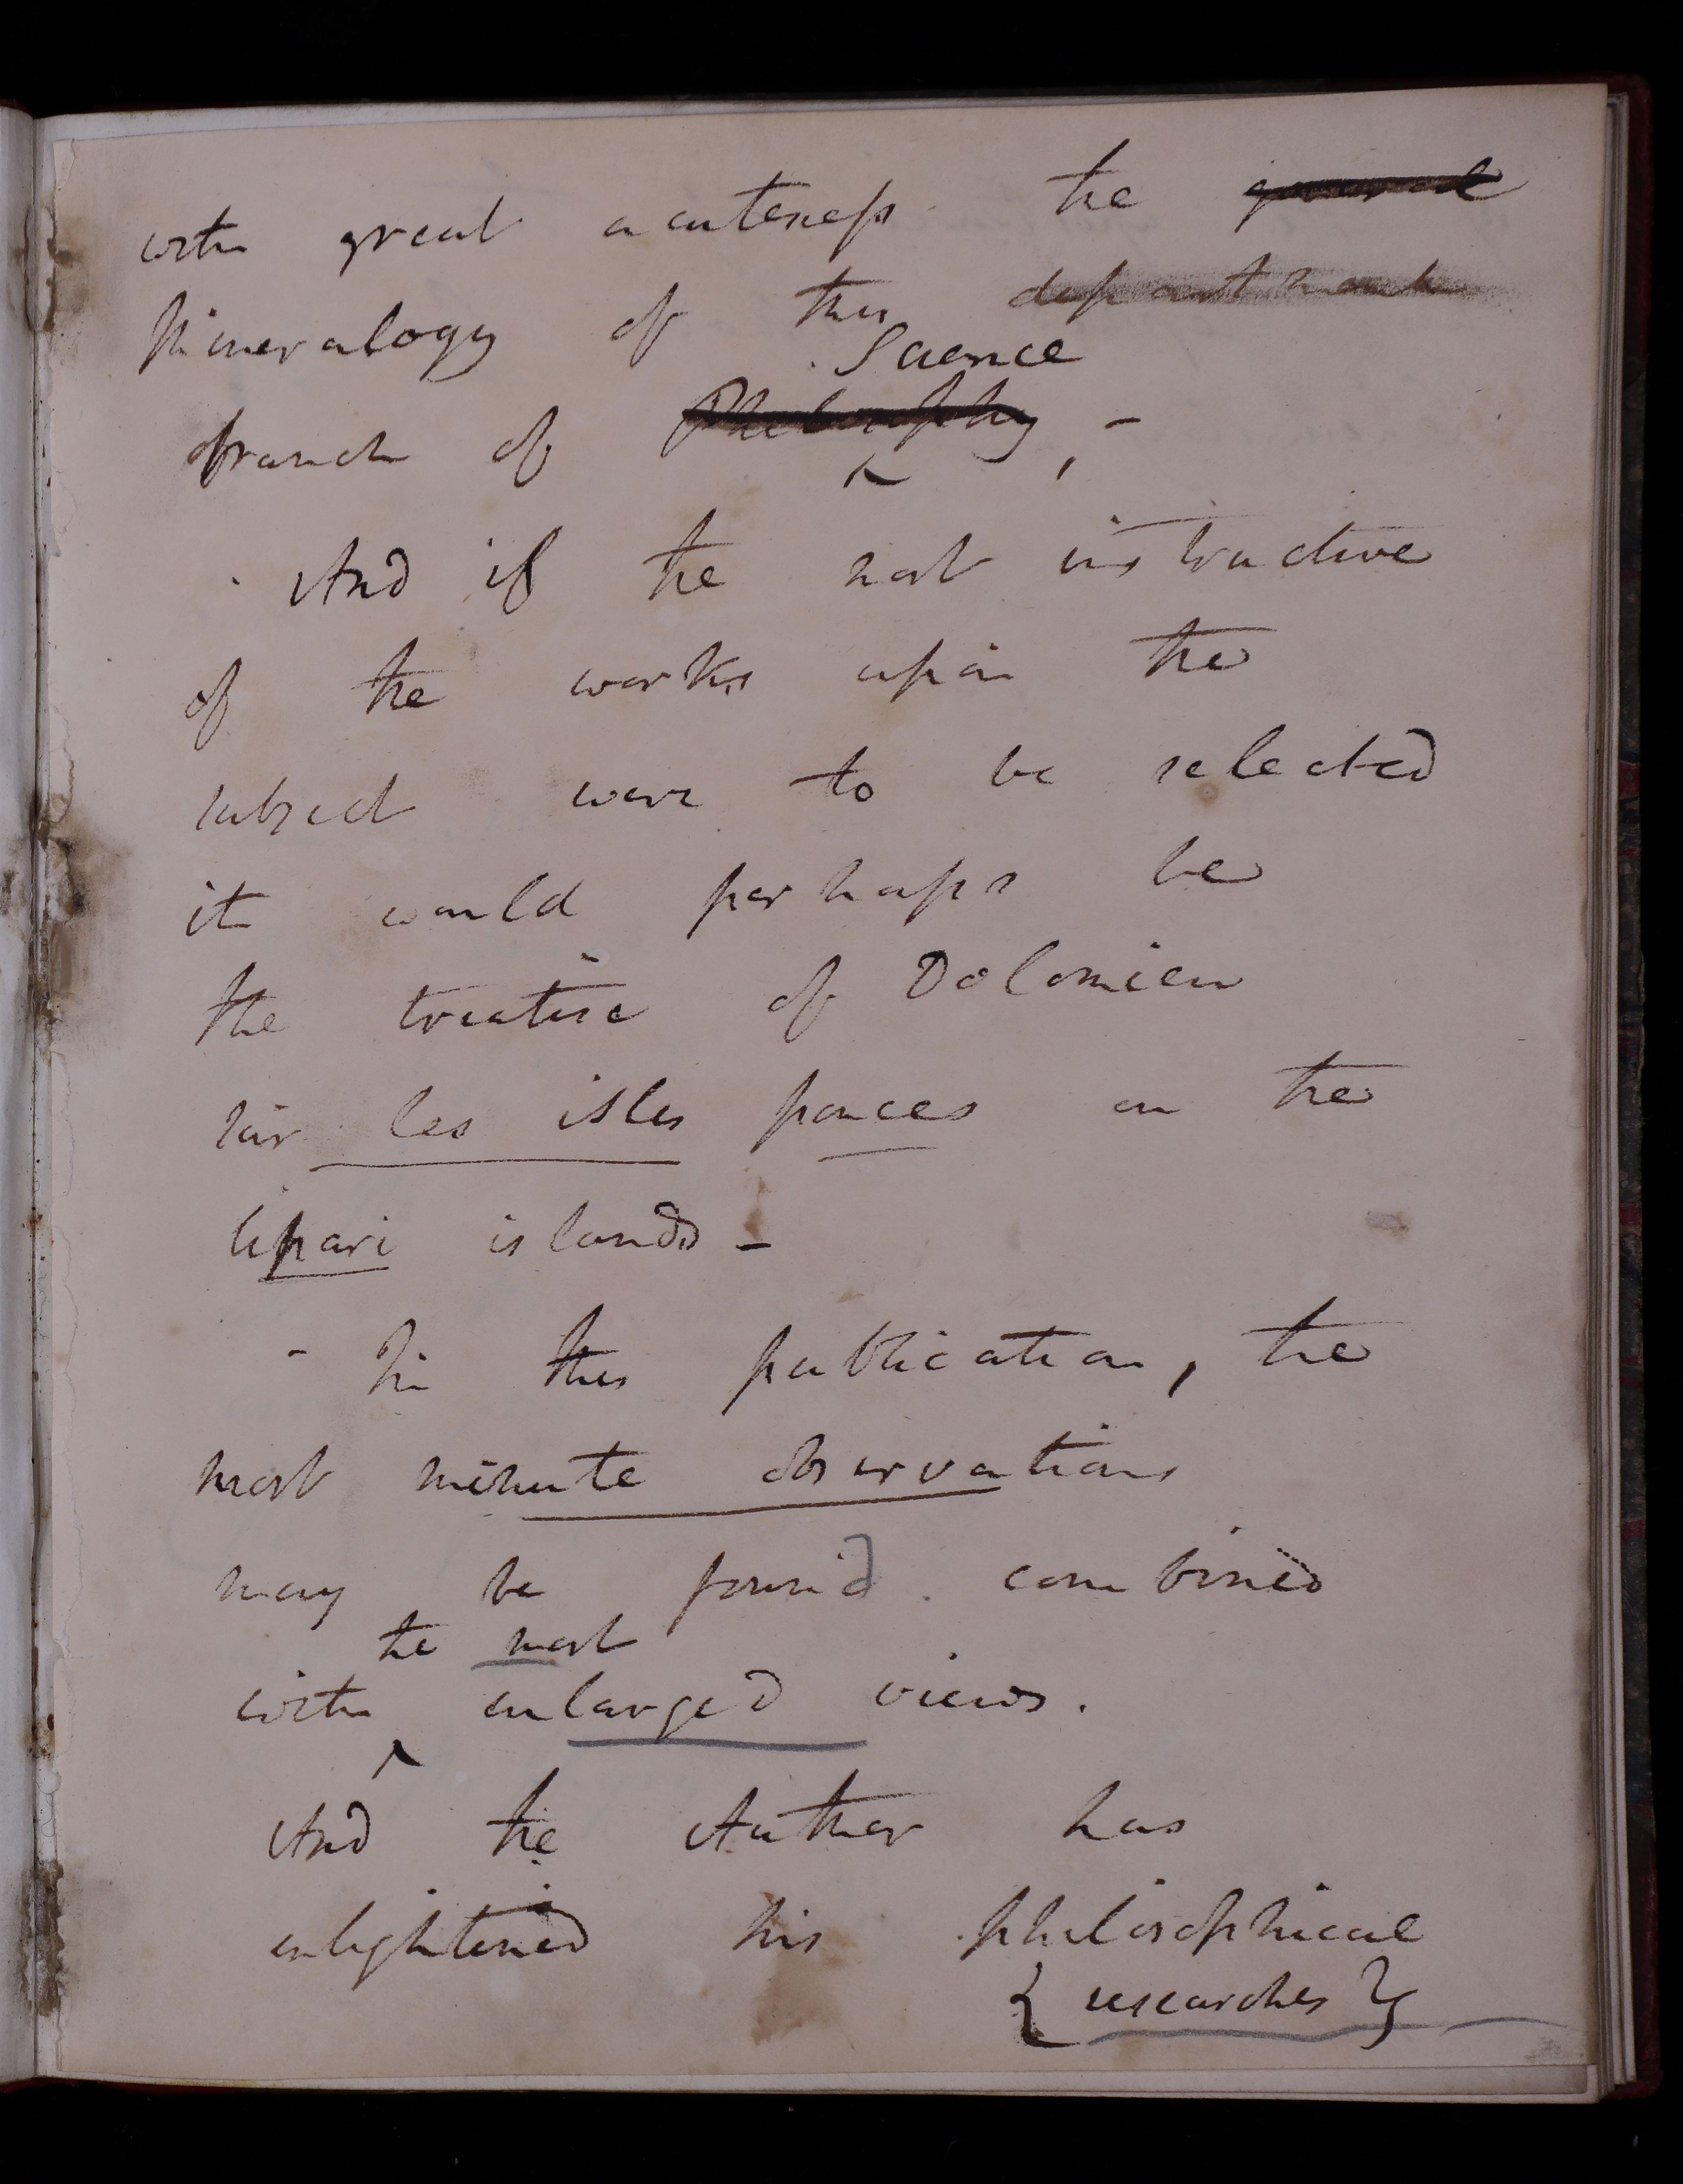 with great acuteness the general
Mineralogy of this department
Science
branch of Philosophy, -
And if the most instructive
of the works upon the
subject were to be selected
it would perhaps be
the treatise of Dolomieu
sur les isles ponces on the
Lipari islands -
- In this publication, the
most minute observations
may be found combined
the most
with enlarged views.
And the Author has
enlightened his philosophical
{ researches }